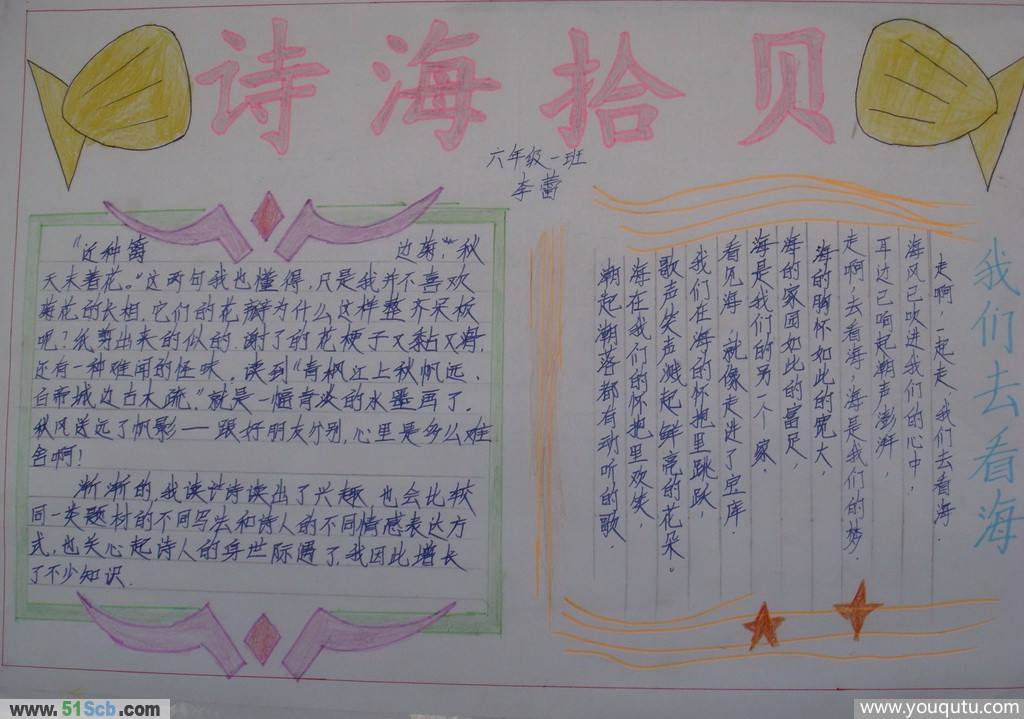 诗海拾贝
六年级一班
李蕾
“迁种 边菊,“秋
天未着花。”这两句我也懂得,只是我并不喜欢
菊花的长相,它们的花瓣为什么这样整齐呆板
呢?纸剪出来的似的,谢了的花梗子又黏又
还有一种难闻的怪味。读到“青枫江上秋帆远,
白帝城边古木疏。”就是一幅淡的水墨画了。
秋风送远了帆影——跟好朋友分别,心里是多么难
舍啊!
渐渐的,我读诗读出了兴趣,也会比较
同一类题材的不同写法和诗人的不同情感表达方
式,也关心起诗人的身世际遇了,我因此增长
了不少知识.
我们去看海
走啊,一起走,我们去看海.
海风已吹进我们的心中,
耳边已响起潮声澎湃,
走啊,去看海,海是我们的梦.
海的胸怀如此的宽大,
海的家园如此的富足,
海是我们的另一个家.
看见海,就像走进了宝库.
我们在海的怀抱里跳跃,
歌声笑声溅起鲜亮的花朵。
海在我们的怀抱里欢笑,
潮起潮落都有动听的歌.
www.51Scb.com
www.youqutu.com